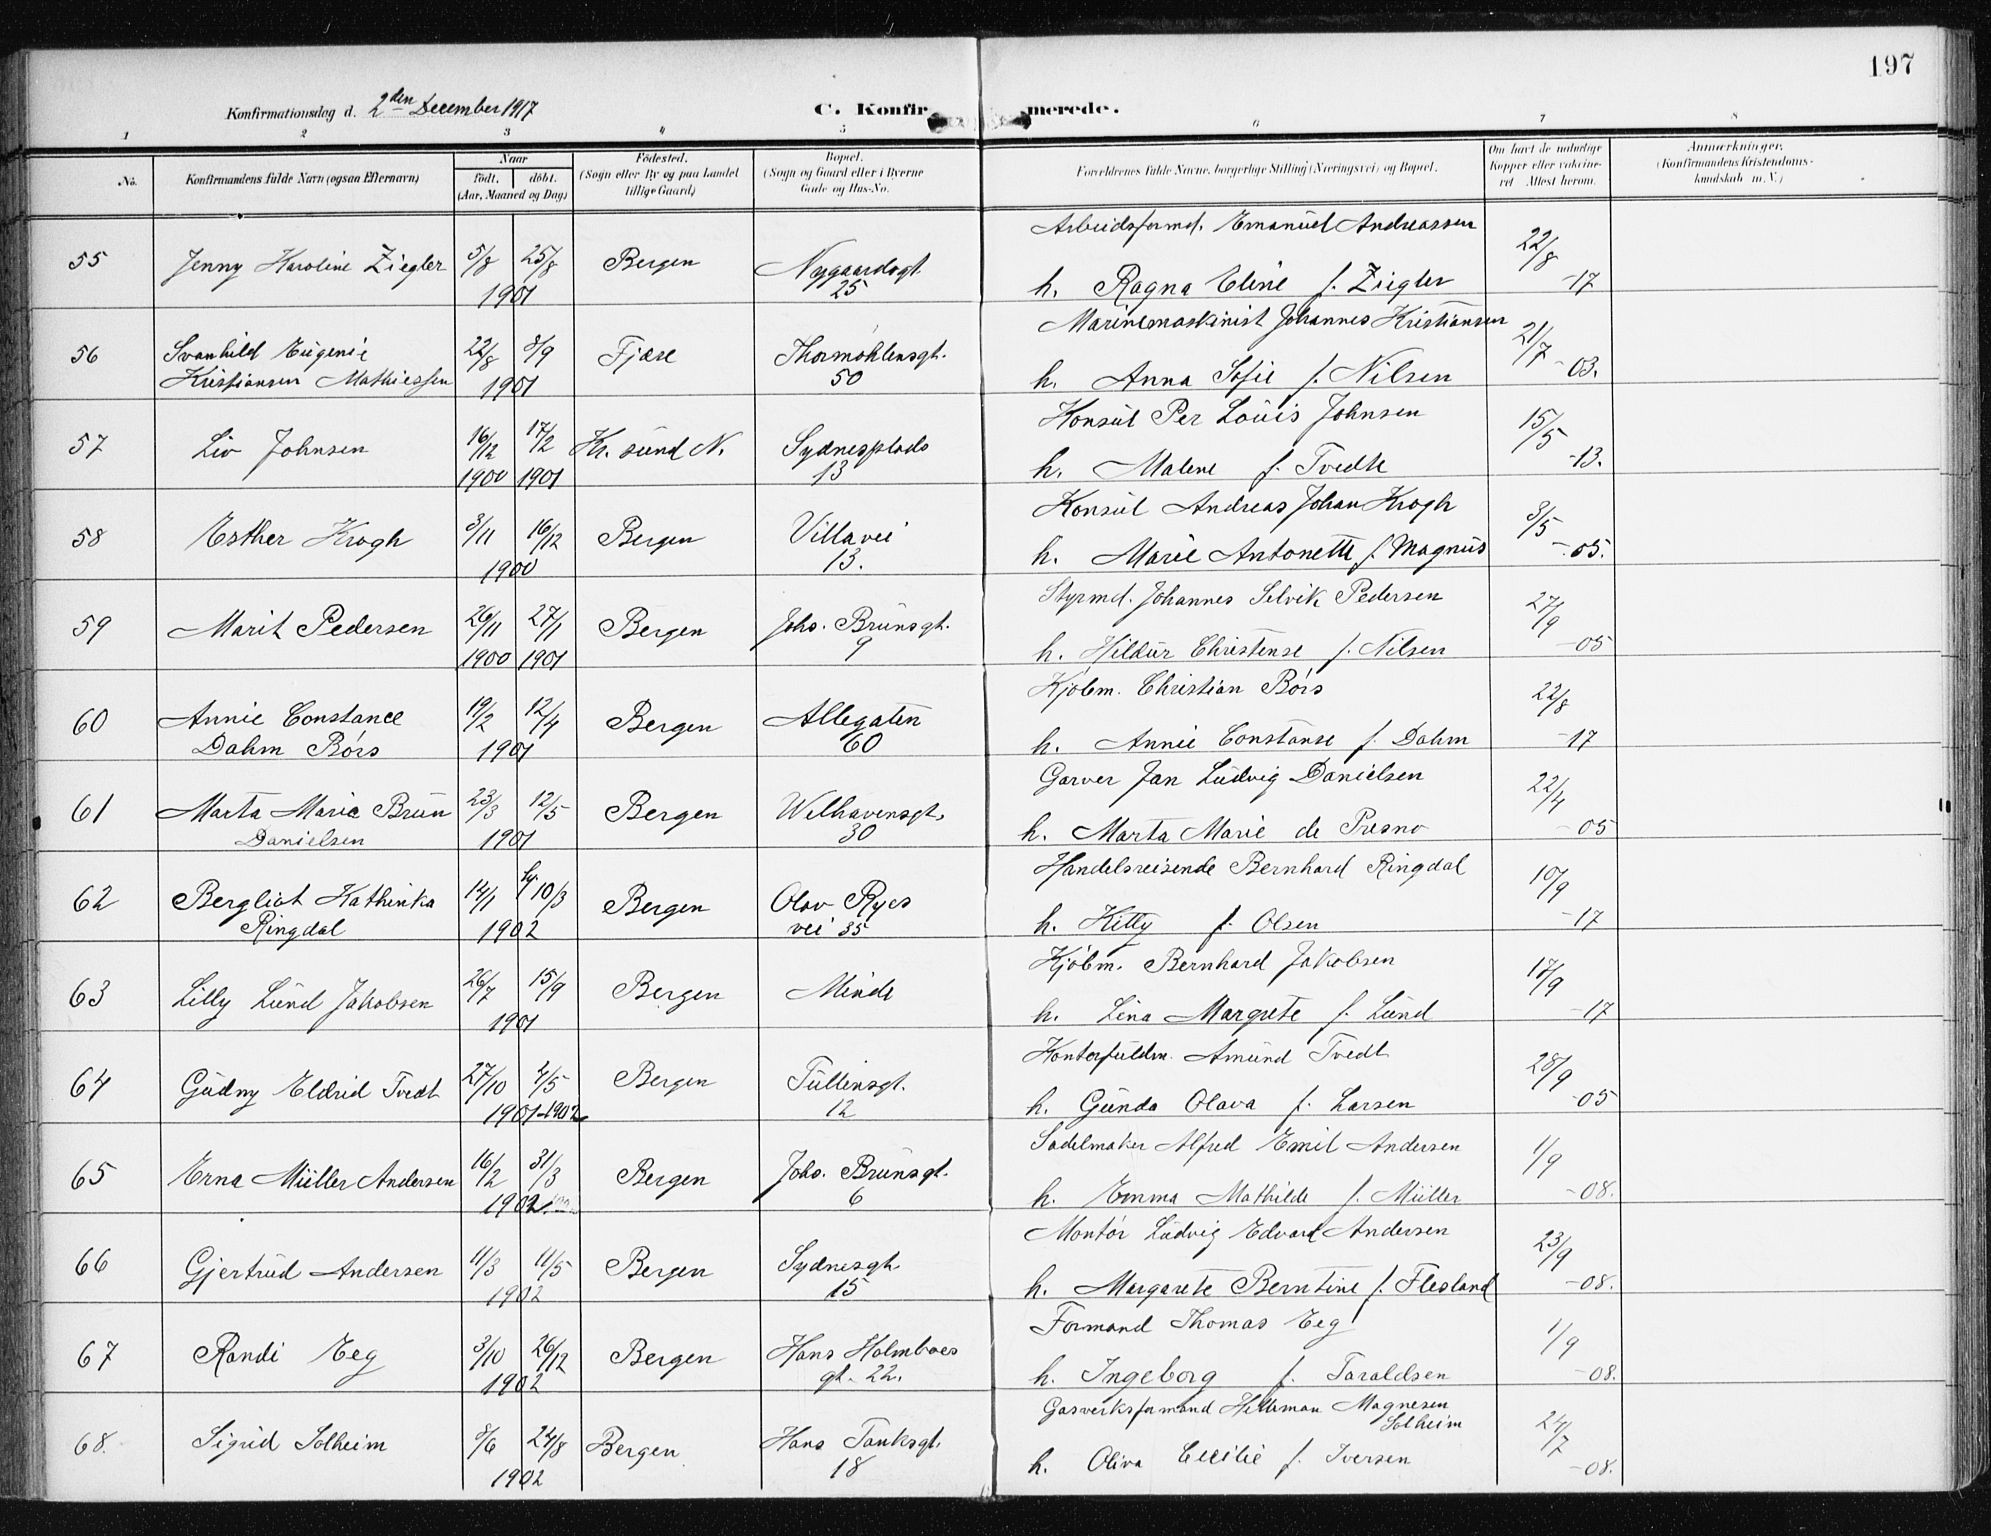 197
Konfirmationsdag d. 2den December 1917
C. Konfirmerede.
1 2 3 4 5 6 7 8
No.
Konfirmandens fulde Navn (ogsaa Efternavn)
Naar
født. døbt.
(Aar, Maaned og Dag)
Fødested.
(Sogn eller By og paa Landet
tillige Gaard)
Bopæl.
(Sogn og Gaard eller i Byerne
Gade og Hus-No.
Forældrenes fulde Navne, borgerlige Stilling (Næringsvei) og Bopæl.
Om havt de naturlige
Kopper eller vakcine-
ret Attest herom.
Anmærkninger.
(Konfirmandens Kristendoms-
kundskab m. V.)
55 Jenny Karoline Ziegler 5/8 25/8 1901 Bergen Nygaardsgt. 25
Arbeidsformd. Emanuel Andreassen
h. Ragna Eline f. Ziegler 22/8 -17
56 Svanhild Eugenie
Kristiansen Mathiessen 22/8 8/9 1901 Fjære Thormøhlensgt. 50
Marinemaskinist Johannes Kristiansen
h. Anna Sofie f. Nilsen 21/7 -03.
57 Liv Johnsen 16/12 1900 17/2 1901 Kr. sund N. Sydnesplads 13
Konsul Per Louis Johnsen
h. Malene f. Tvedte 15/5 -13.
58 Esther Krogh 3/11 16/12 1900 Bergen Villavei 13.
Konsul Andreas Johan Krogh
h. Marie Antonette f. Magnus 3/5 -05.
59 Marit Pedersen 26/11 1900 27/1 1901 Bergen Johs. Brunsgt. 9
Styrmd. Johannes Selvik Pedersen
h. Hildur Christense f. Nilsen 27/9 -05
60 Annie Constance
Dahm Børs 19/2 12/4 1901 Bergen Allegaten 60
Kjøbm. Christian Børs
h. Annie Constanse f. Dahm 22/8 -17
61 Marta Marie Brun
Danielsen 23/3 12/5 1901 Bergen Welhavensgt. 30
Garver Jan Ludvig Danielsen
h. Marta Marie de Presno 22/4 -05
62 Bergliot Kathinka
Ringdal 14/1 10/3 1902 Bergen Olav Ryes
vei 35
Handelsreisende Bernhard Ringdal
h. Kitty f. Olsen 10/9 -17
63 Lilly Lund Jakobsen 26/7 15/9 1901 Bergen Minde
Kjøbm. Bernhard Jakobsen
h. Lina Margrete f. Lund 17/9 -17
64 Gudny Eldrid Tvedt 27/10 4/5 1901-1902 Bergen Tullinsgt. 12
Kontorfuldm. Amund Tvedt
h. Gunda Olava f. Larsen 28/9 -05
65 Erna Müller Andersen 16/2 31/3 1902 Bergen Johs. Brunsgt. 6
Sadelmaker Alfred Emil Andersen
h. Emma Mathilde f. Müller 1/9 -08.
66 Gjertrud Andersen 11/3 11/5 1902 Bergen Sydnesgt. 15
Montør Ludvig Edvard Andersen
h. Margarete Berntine f. Flesland 23/9 -08.
67 Randi Eeg 3/10 26/12 1902 Bergen Hans Holmboes
gt. 22.
Formand Thomas Eeg
h. Ingeborg f. Taraldsen 1/9 -08.
68. Sigrid Solheim 8/6 24/8 1902 Bergen Hans Tanksgt. 18
Gasverksformand Magnesen
Solheim
h. Oliva Cecilie f. Iversen 24/7 -08.